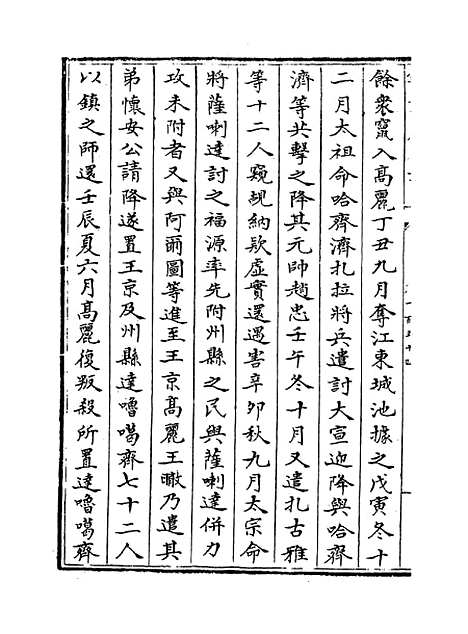 餘衆竄入髙麗丁丑九月奪江東城池據之戊寅冬十
二月太祖命哈齊濟扎拉將兵遣討大宣迎降與哈齊
濟等共擊之降其元帥趙忠壬午冬十月又遣扎古雅
等十二人窺覘納欵虚實還遇害辛夘秋九月太宗命
將薩喇達討之福源率先附州縣之民與薩喇達併力
攻未附者又與阿爾圖等進至王京髙麗王㬚乃遣其
弟懷安公請降遂置王京及州縣達嚕噶齊七十二人
以鎮之師還壬辰夏六月髙麗復叛殺所置達嚕噶齊